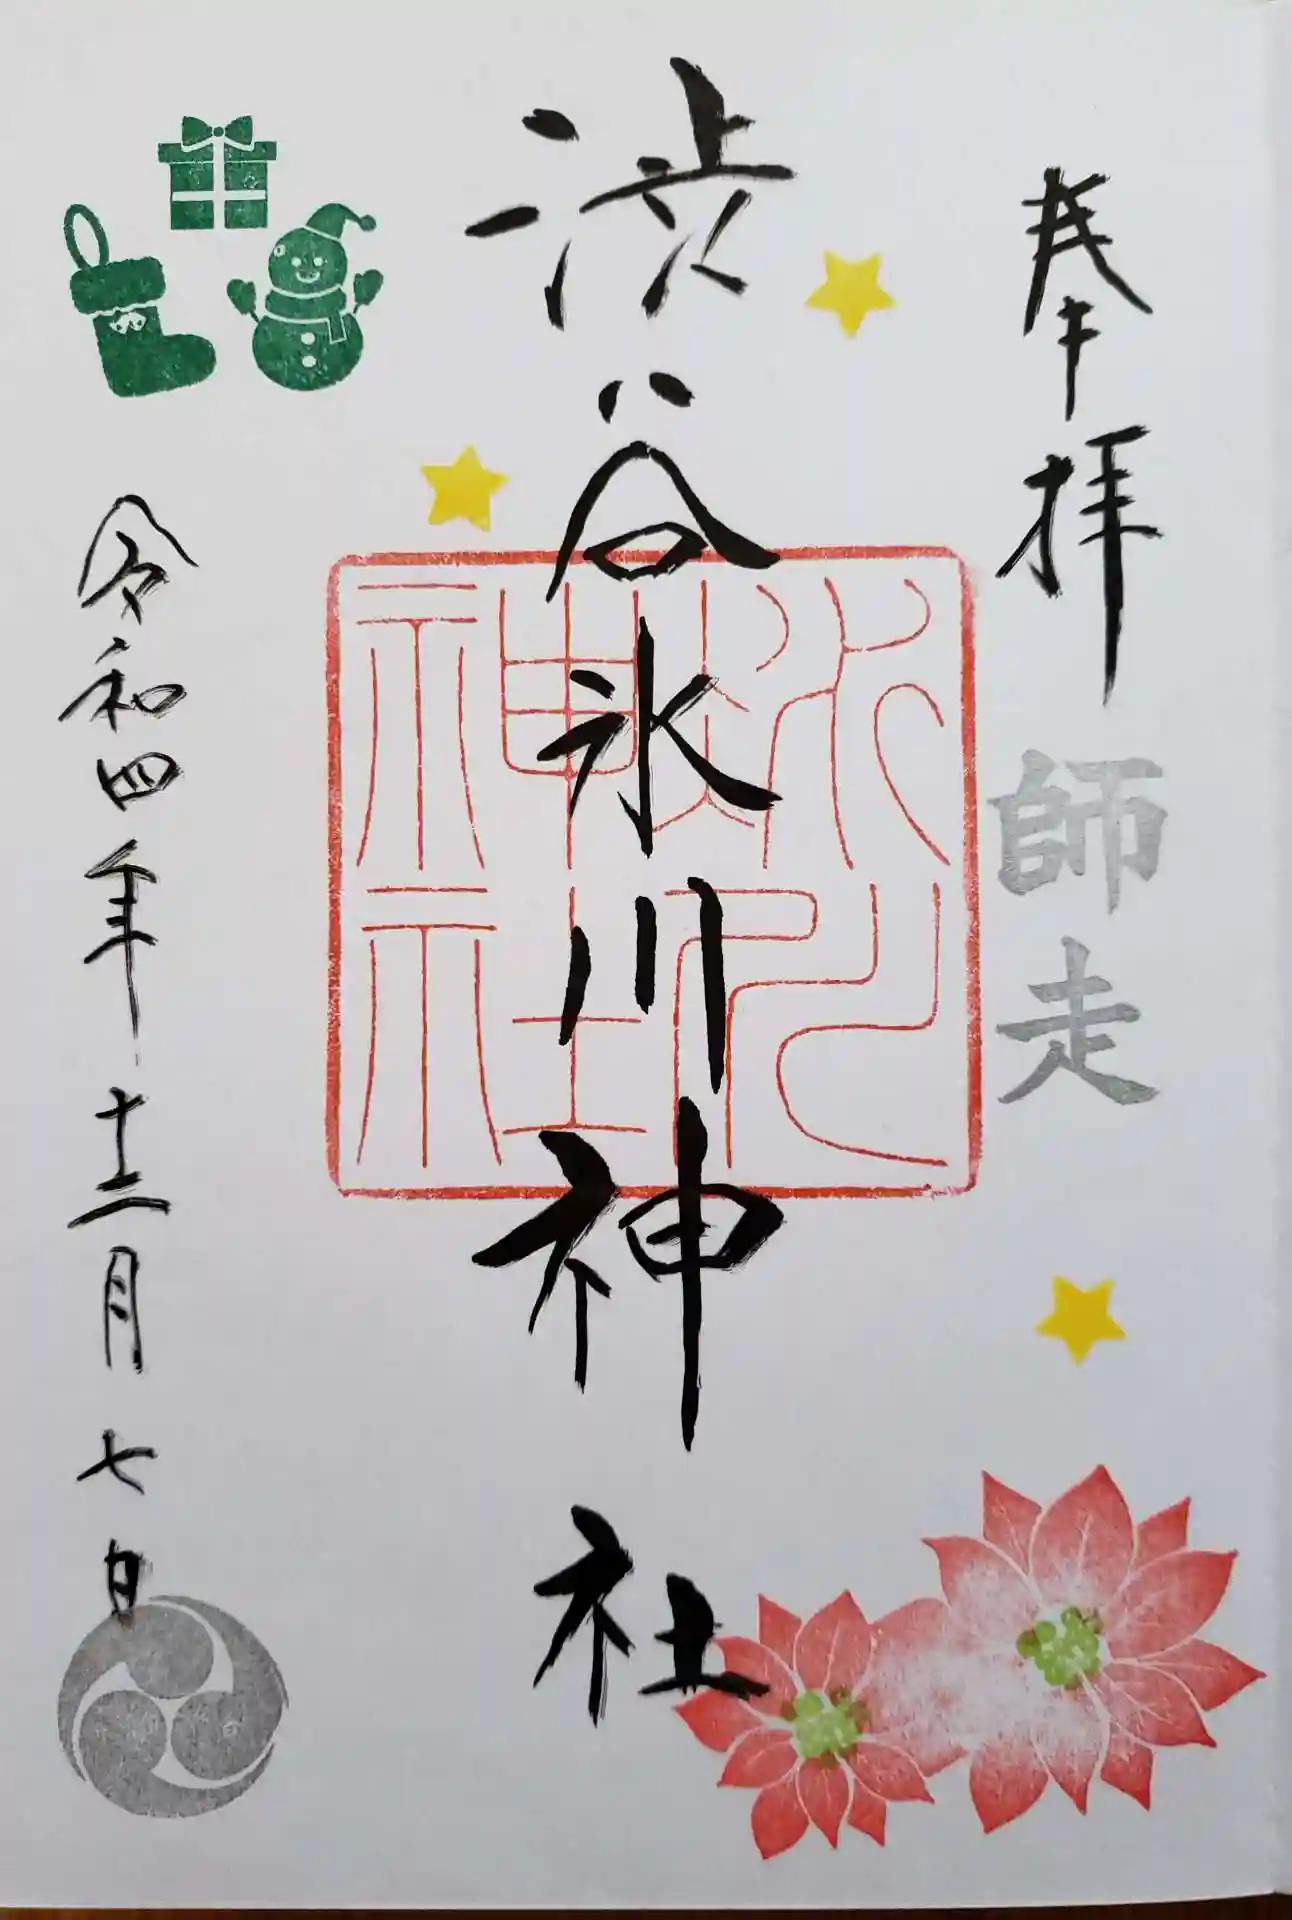 奉拝
師走
渋谷氷川神社
氷川神社
令和四年十二月七日